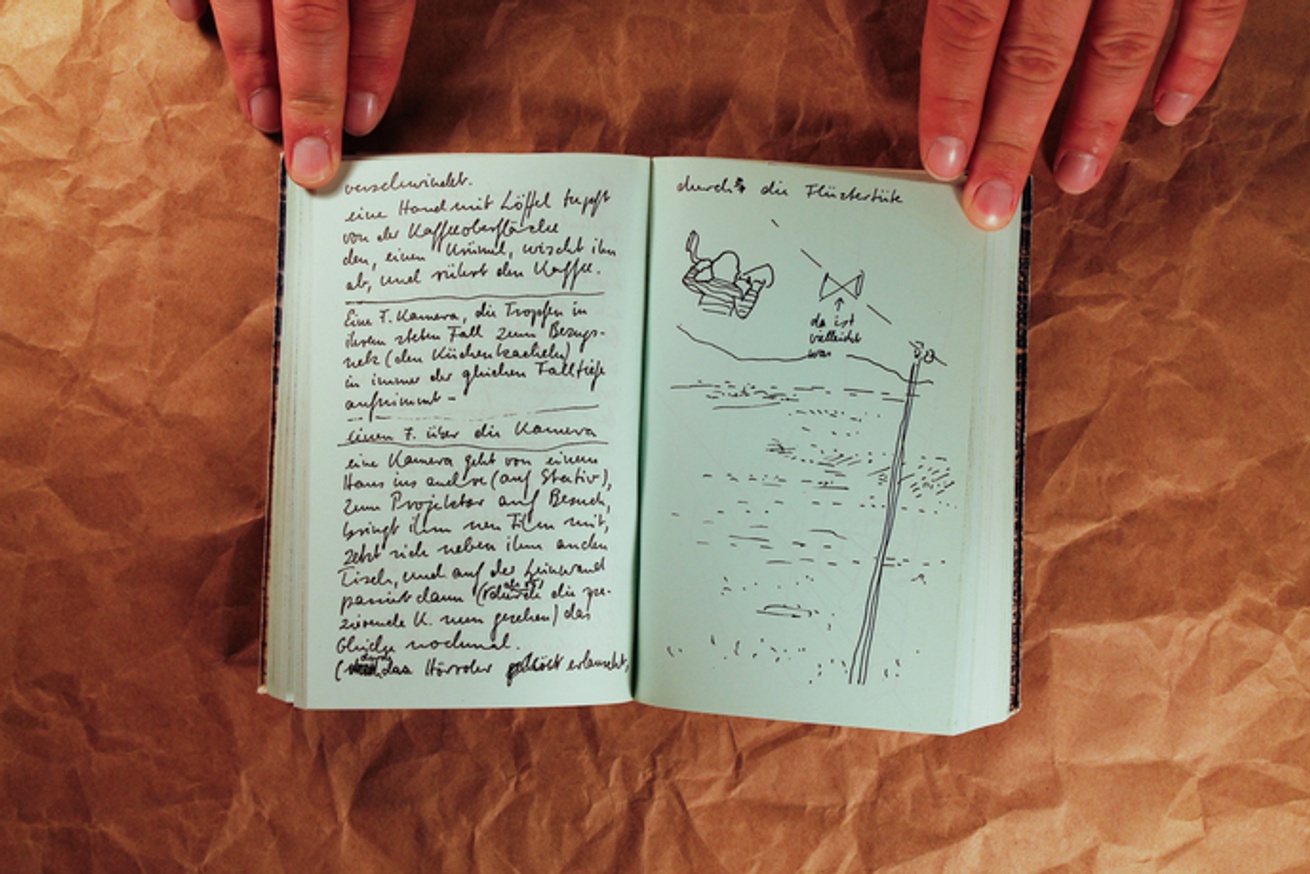 verschwindet.
eine Hand mit Löffel tupft
von der Kaffeeoberfläche
den, einen Krümel, wischt ihn
ab, und rührt den Kaffee.
Eine F. Kamera, die Tropfen in
ihrem steten Fall zum Bezugs-
netz (den Küchenkacheln)
in immer der gleichen Falltiefe
aufnimmt –
einen F. über die Kamera
eine Kamera geht von einem
Haus ins andre (auf Stativ),
zum Projektor auf Besuch,
bringt ihm nen Film mit,
setzt sich neben ihm an den
Tisch, und auf der Leinwand
passiert dann (durch die
K. nun gesehen) das
Gleiche nochmal.
(durch das Hörrohr erlauscht,
durch die Flüstertüte
da ist
vielleicht
was